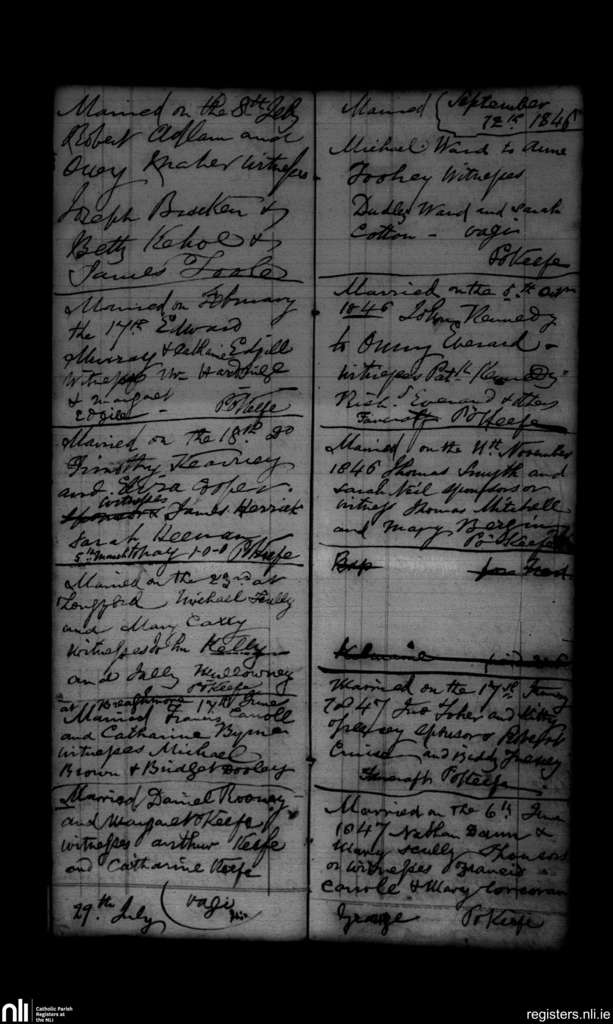 Married on the 8th Feby
Robert Adlam and
Owey Kraher witnesses
Joseph Bracken &
Betty Kehoe &
James Toole
Married on February
the 17th Edward
Murray & Catharine Edgill
Witnesses Wm Hardidge
& Margaret
Edgill - PO Keefe
Married on the 18th Do
Timothy Kearney
and Eliza Cooper
witnesses
sponsors James Kerrick
Sarah Keenan
5th March PO Keefe
Married on the 23rd at
Longford Michael Scully
and Mary Carty
witnesses John Kelly
and Sally Mullowney
PO Keefe
at 17th June
Married Francis Carroll
and Catharine Byrne
witnesses Michael
Brown & Bridget Dooley
Married Daniel Rooney
and Margaret O Keefe
witnesses Arthur Keefe
and Catharine Keefe
29th July
vagi
Married September
12th 1846
Michael Ward to Anne
Foohey Witnesses
Dudley Ward and Sarah
Cotton - vagi
PO Keefe
Married on the 5th
1846 John Kennedy
to Owny Everard -
witnesses Patk Kennedy
Richd Everard & others
PO Keefe
Married on the 11th November
1846 Thomas Smyth and
Sarah Neil sponsors or
witness Thomas Mitchell
and Mary Bergin
PO Keefe
Bap
Married on the 17th
1847 Jno Foher and Kitty
sponsors Robert
Cruise and Biddy
PO Keefe
Married on the 6th June
1847 Nathan Dunn &
Mary Scully Sponsors
or witnesses Francis
Carroll & Mary Corcoran
Grange PO Keefe
nli
Catholic Parish
Registers at
the NLI
registers.nli.ie